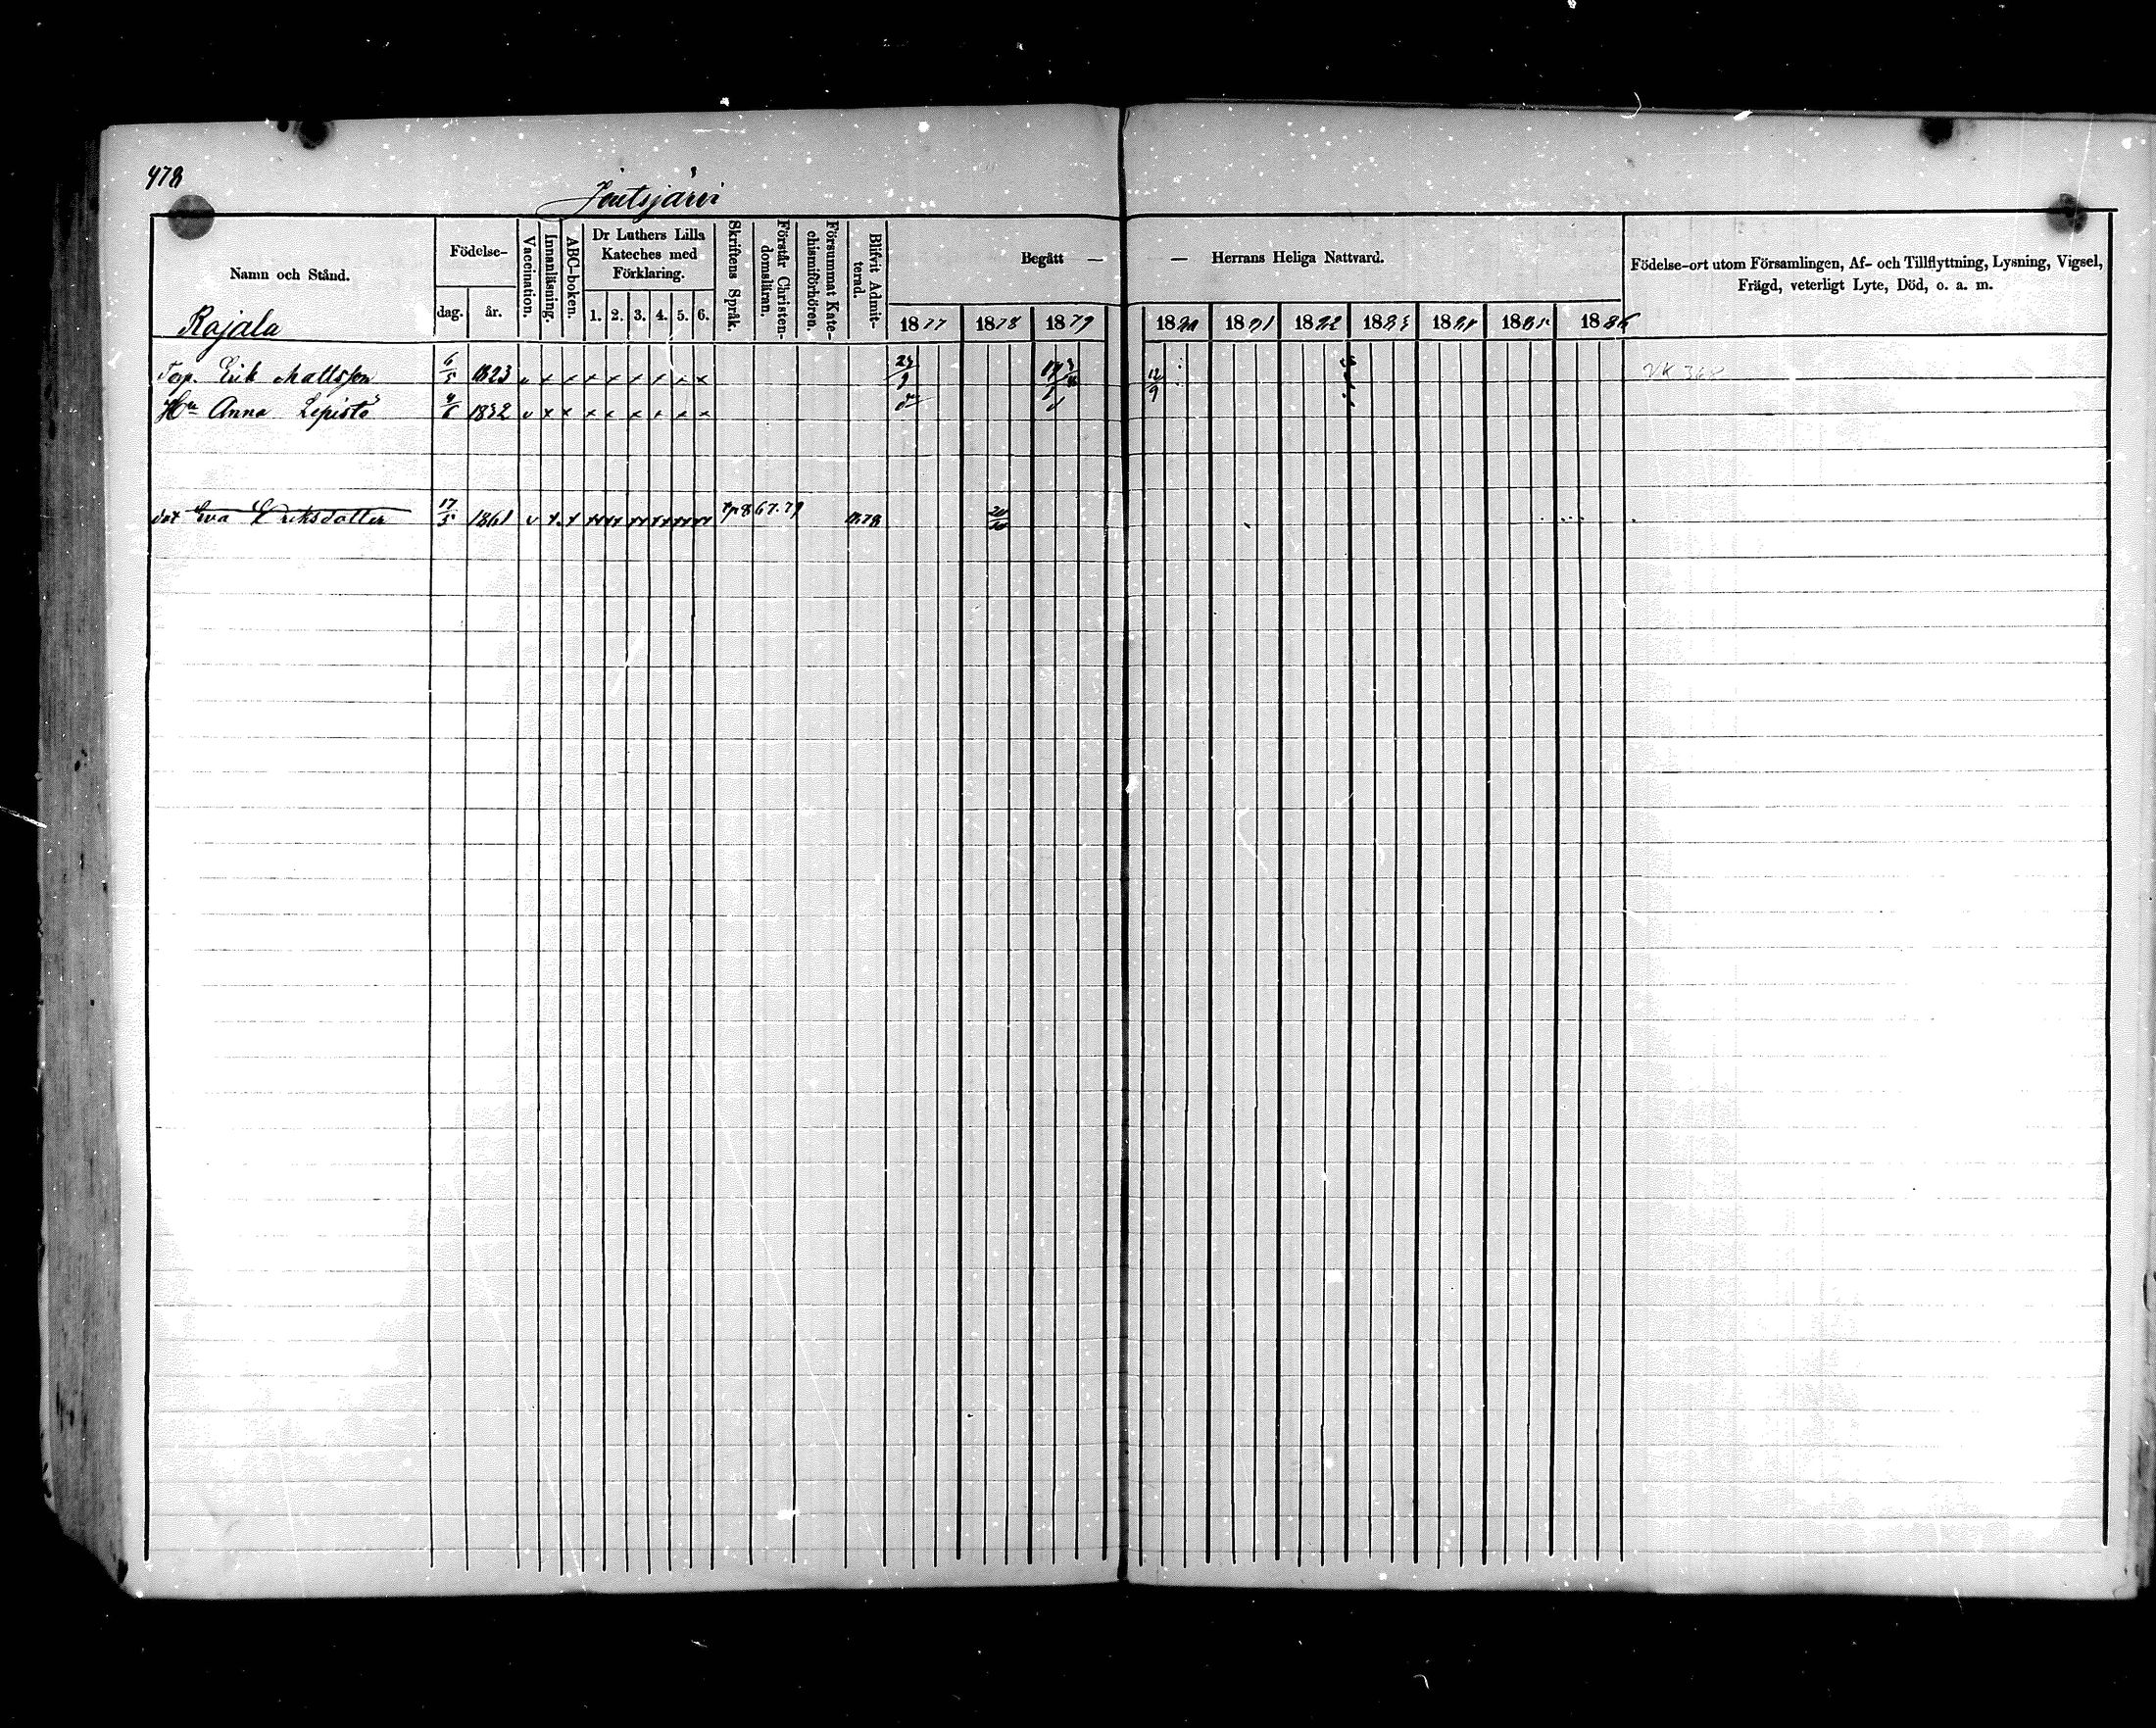 478
Jäntsjärvi
Namn och Stånd.
Födelse-
dag. år.
Vaccination.
Innanläsning.
ABC-boken.
Dr Luthers Lilla
Kateches med
Förklaring.
1. 2. 3. 4. 5. 6.
Skriftens Språk.
Förstår Christen-
domsläran.
Försummat Kate-
chismiförhören.
Blifvit Admit-
terad.
Begått —
— Herrans Heliga Nattvard.
1877 1878 1879 1880 1881 1882 1883 1884 1885 1886
Födelse-ort utom Församlingen, Af- och Tillflyttning, Lysning, Vigsel,
Frägd, veterligt Lyte, Död, o. a. m.
Rajala
Torp. Erik Mattsson 6/5 1823 v x x x x x x x x 12/9
Hu Anna Lepistö 4/6 1832 v x x x x x x x x
dot Eva Eriksdotter 17/3 1861 v x x 67.79 1878